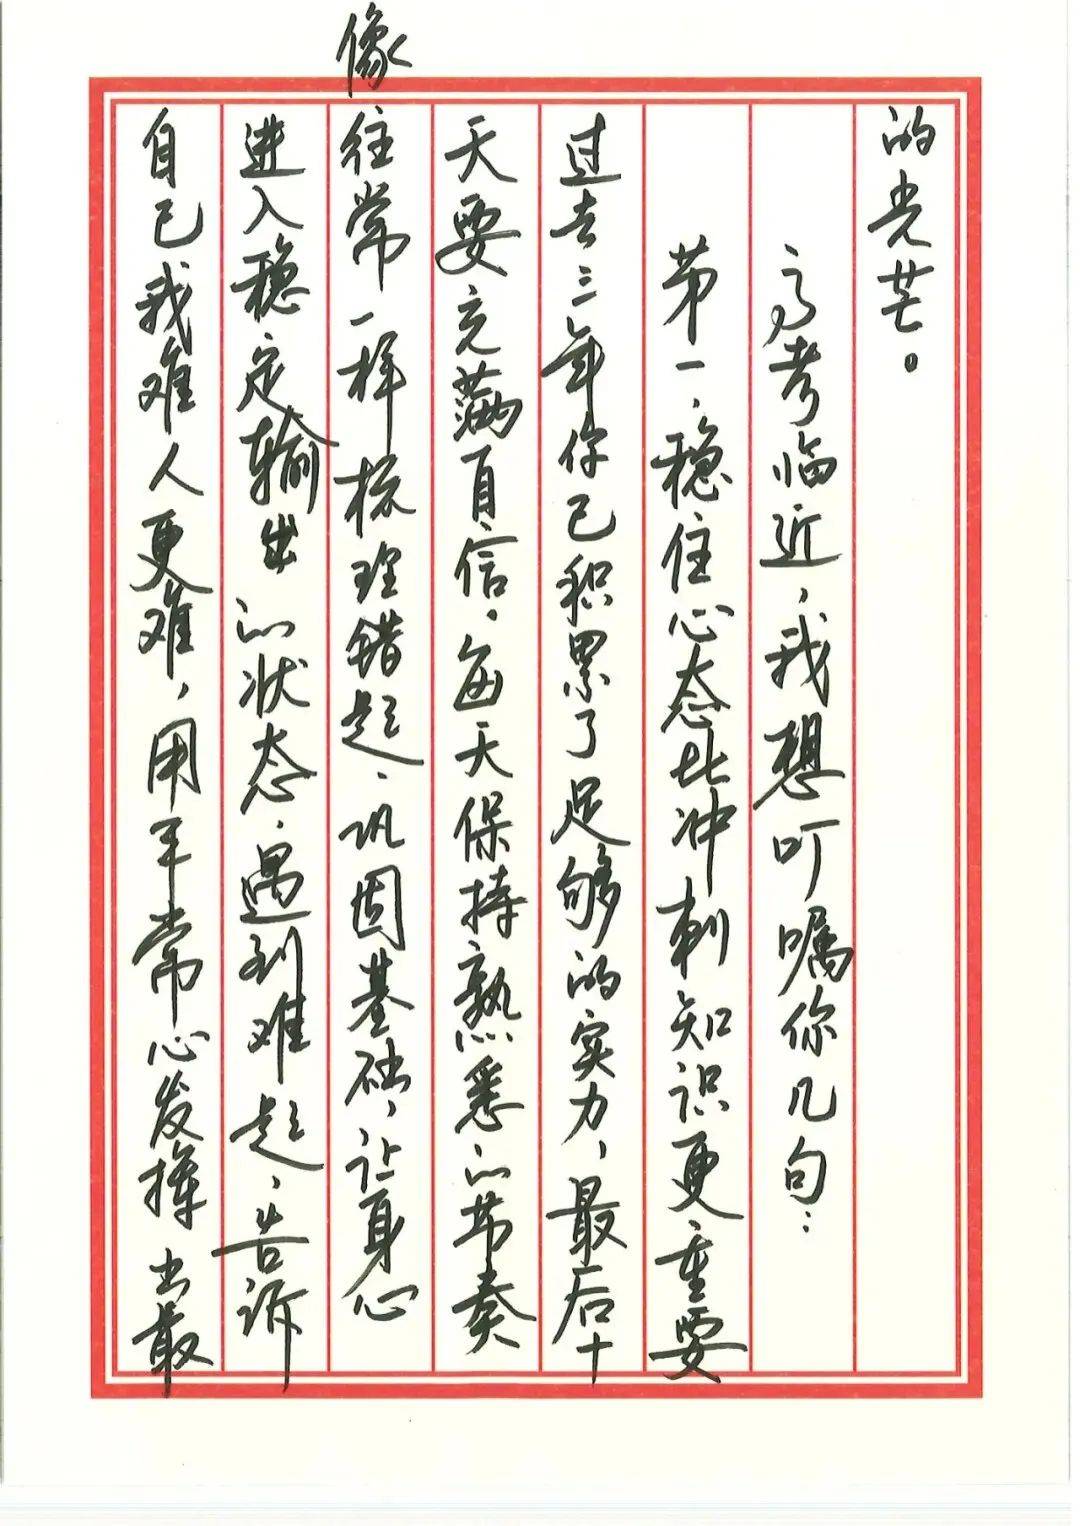 的光芒。
高考临近，我想叮嘱你几句：
第一，稳住心态比冲刺知识更重要
过去三年你已积累了足够的实力，最后十
天要充满自信，每天保持熟悉的节奏
像往常一样梳理错题、巩固基础，让身心
进入稳定输出的状态，遇到难题，告诉
自己我难人更难，用平常心发挥出最